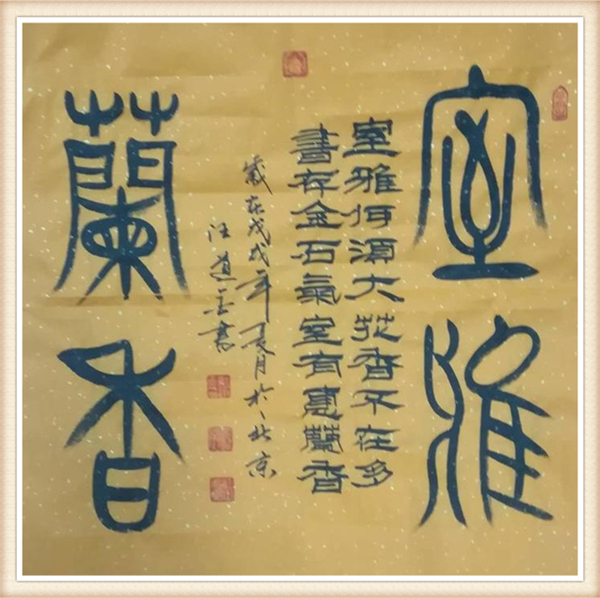 室雅
室雅何須大花香不在多
書存金石氣室有惠蘭香
歲在戊戌年夏月於北京
汪道書
蘭香